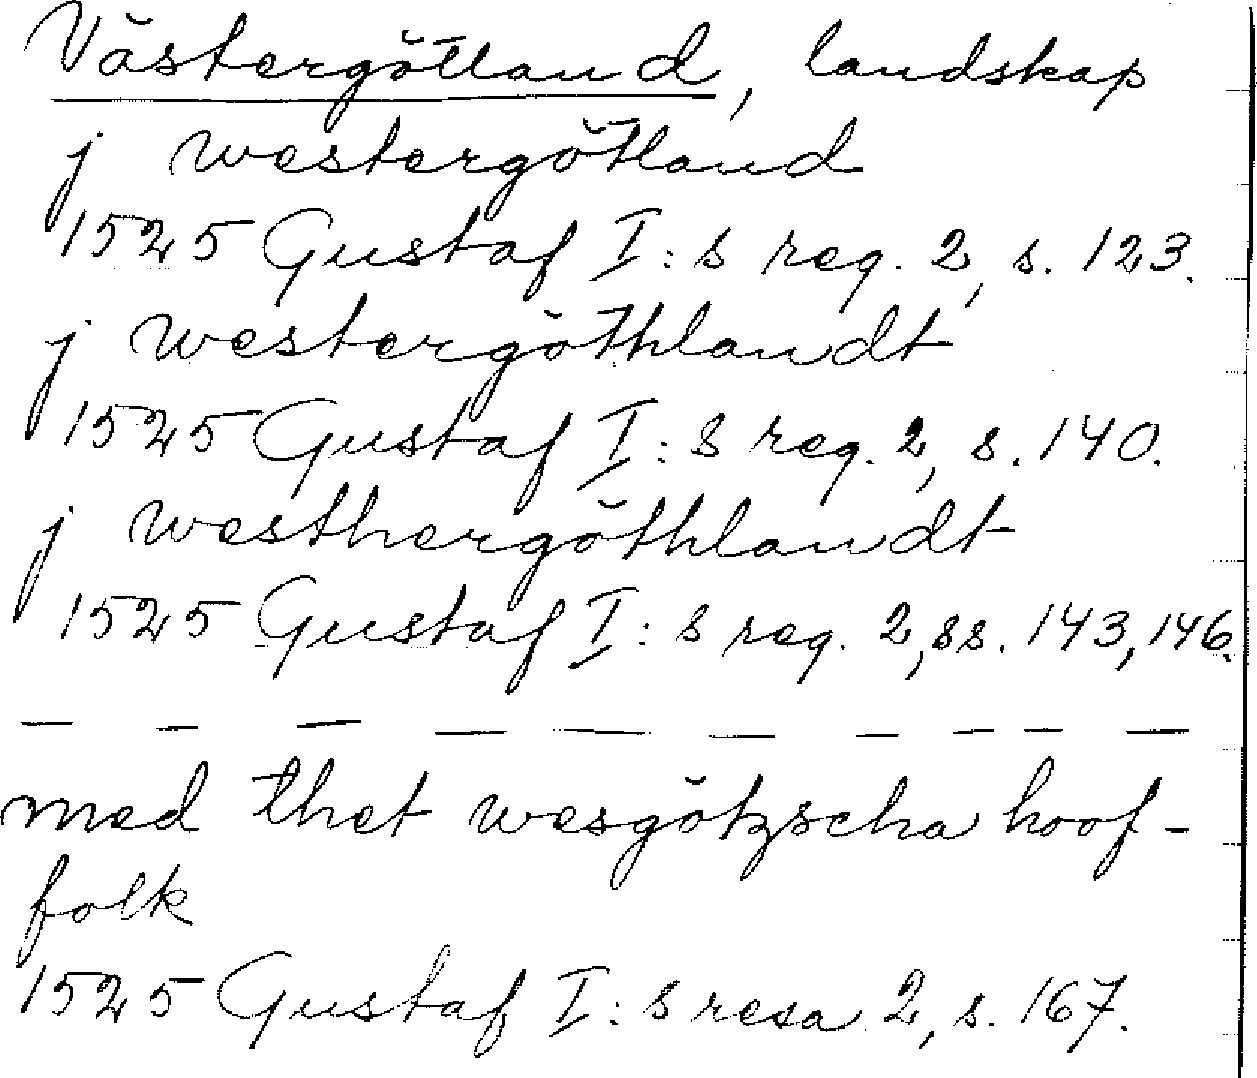 Västergötland, landskap
j westergötland
1525 Gustaf I:s reg. 2, s. 123.
j westergöthlandt
1525 Gustaf I:s reg. 2, s. 140.
j westhergöthlandt
1525 Gustaf I:s reg. 2, ss. 143, 146.
— — — — — — — — — —
med thet wesgötzscha hoof-
folk
1525 Gustaf I:s resa 2, s. 167.